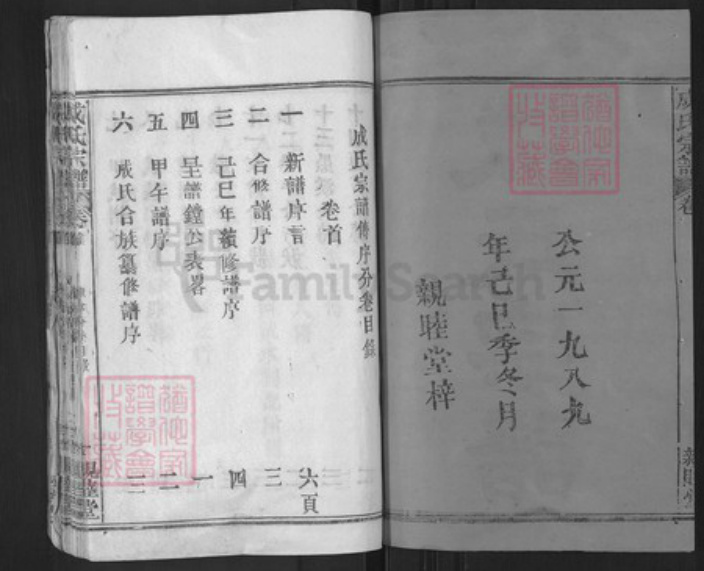 公元一九八九
年己巳季冬月
親睦堂梓
成氏宗譜
成氏宗譜傳序分卷目錄
卷首
一 新譜序言 六頁
二 合修譜序 三
三 己巳年續修譜序 四
四 呈譜鐘公表畧 一
五 甲午譜序 二
六 成氏合族纂修譜序 三
成氏宗譜
親睦堂
FamilySearch